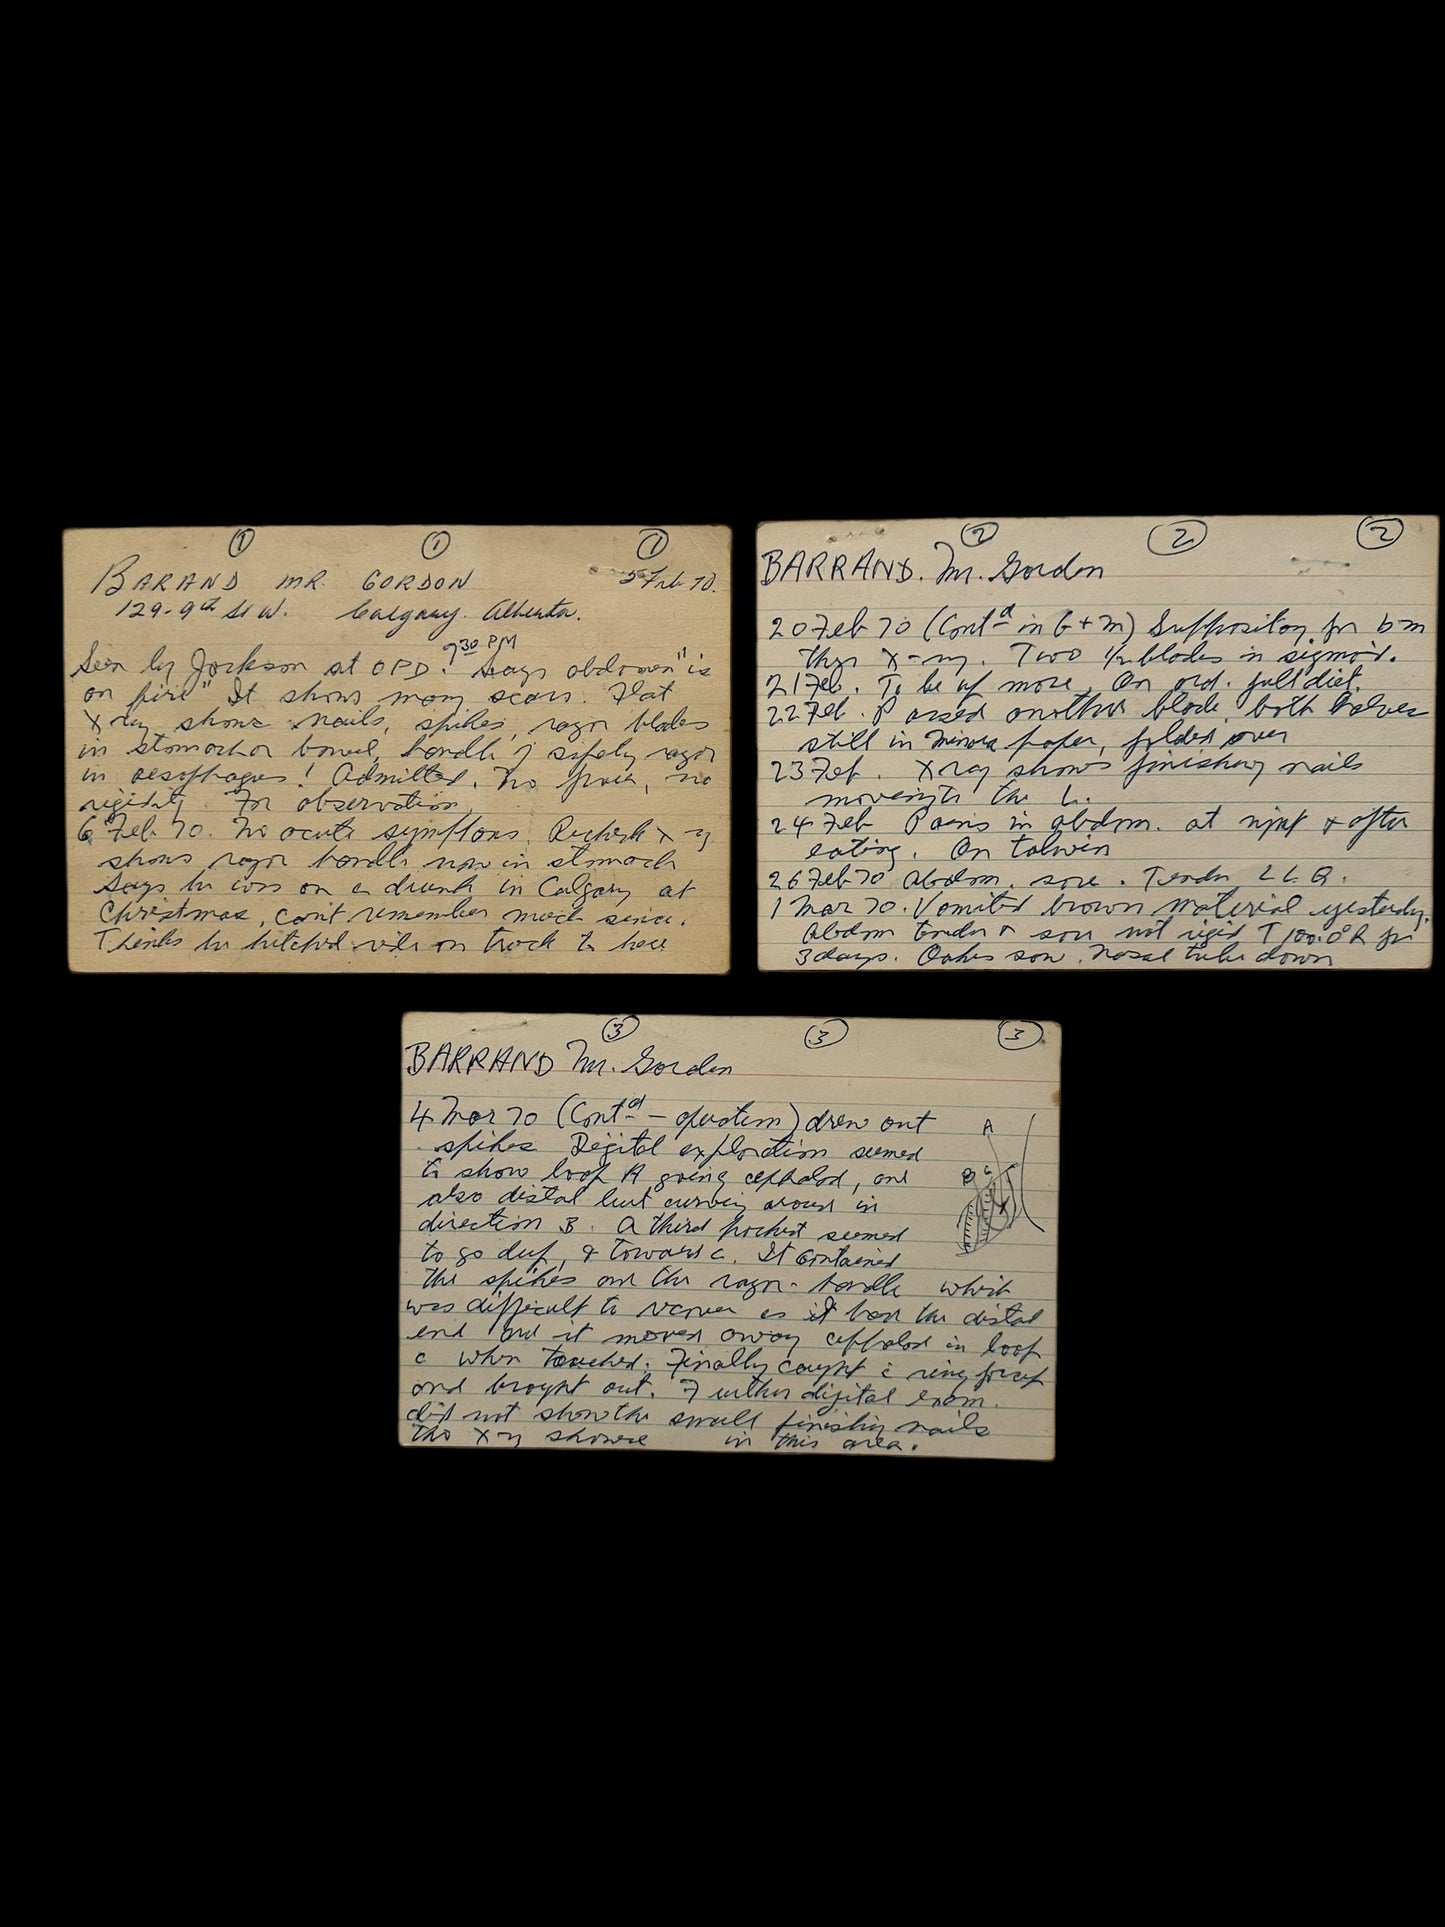 ① ① ①
BARAND MR. GORDON 5 Feb 70.
129-9th St W. Calgary. Alberta.
7 30 PM
Seen by Jackson at OPD. Says abdomen "is
on fire" It shows many scars. Flat
X ray shows nails, spikes, razor blades
in stomach or bowel, handle of safety razor
in oesophagus! Admitted. No fever, no
rigidity. For observation.
6 Feb 70. No acute symptoms. Recheck x-ray
shows razor handle now in stomach
Says he was on a drunk in Calgary at
Christmas, can't remember much since.
Thinks he hitched ride on truck to here
② ② ②
BARRAND. Mr. Gordon
20 Feb 70 (Contd in G + M) Suppository for bm
then X-ray. Two 1/2 blades in sigmoid.
21 Feb. To be up more. On ord. full diet.
22 Feb. Passed another blade, both halves
still in paper, folded over
23 Feb. X ray shows finishing nails
moving to the L.
24 Feb Pains in abdom. at night & after
eating. On talwin
26 Feb 70 Abdom. sore. Tender LLQ.
1 Mar 70. Vomited brown material yesterday.
Abdom tender & sore not rigid T 100.0° R for
3 days. Nasal tube down
③ ③ ③
BARRAND Mr. Gordon
4 Mar 70 (Contd - operation) drew out
spikes Digital exploration seemed
to show loop A going cephalad, and
also distal but curving around in
direction B. A third pocket seemed
to go deep, & towards C. It contained
the spikes and the razor-handle which
was difficult to recover as it was the distal
end and it moved away cephalad in loop
c when touched. Finally caught c̄ ring forcep
and brought out. Further digital exam.
did not show the small finishing nails
tho x-ray showed in this area.
A
B C